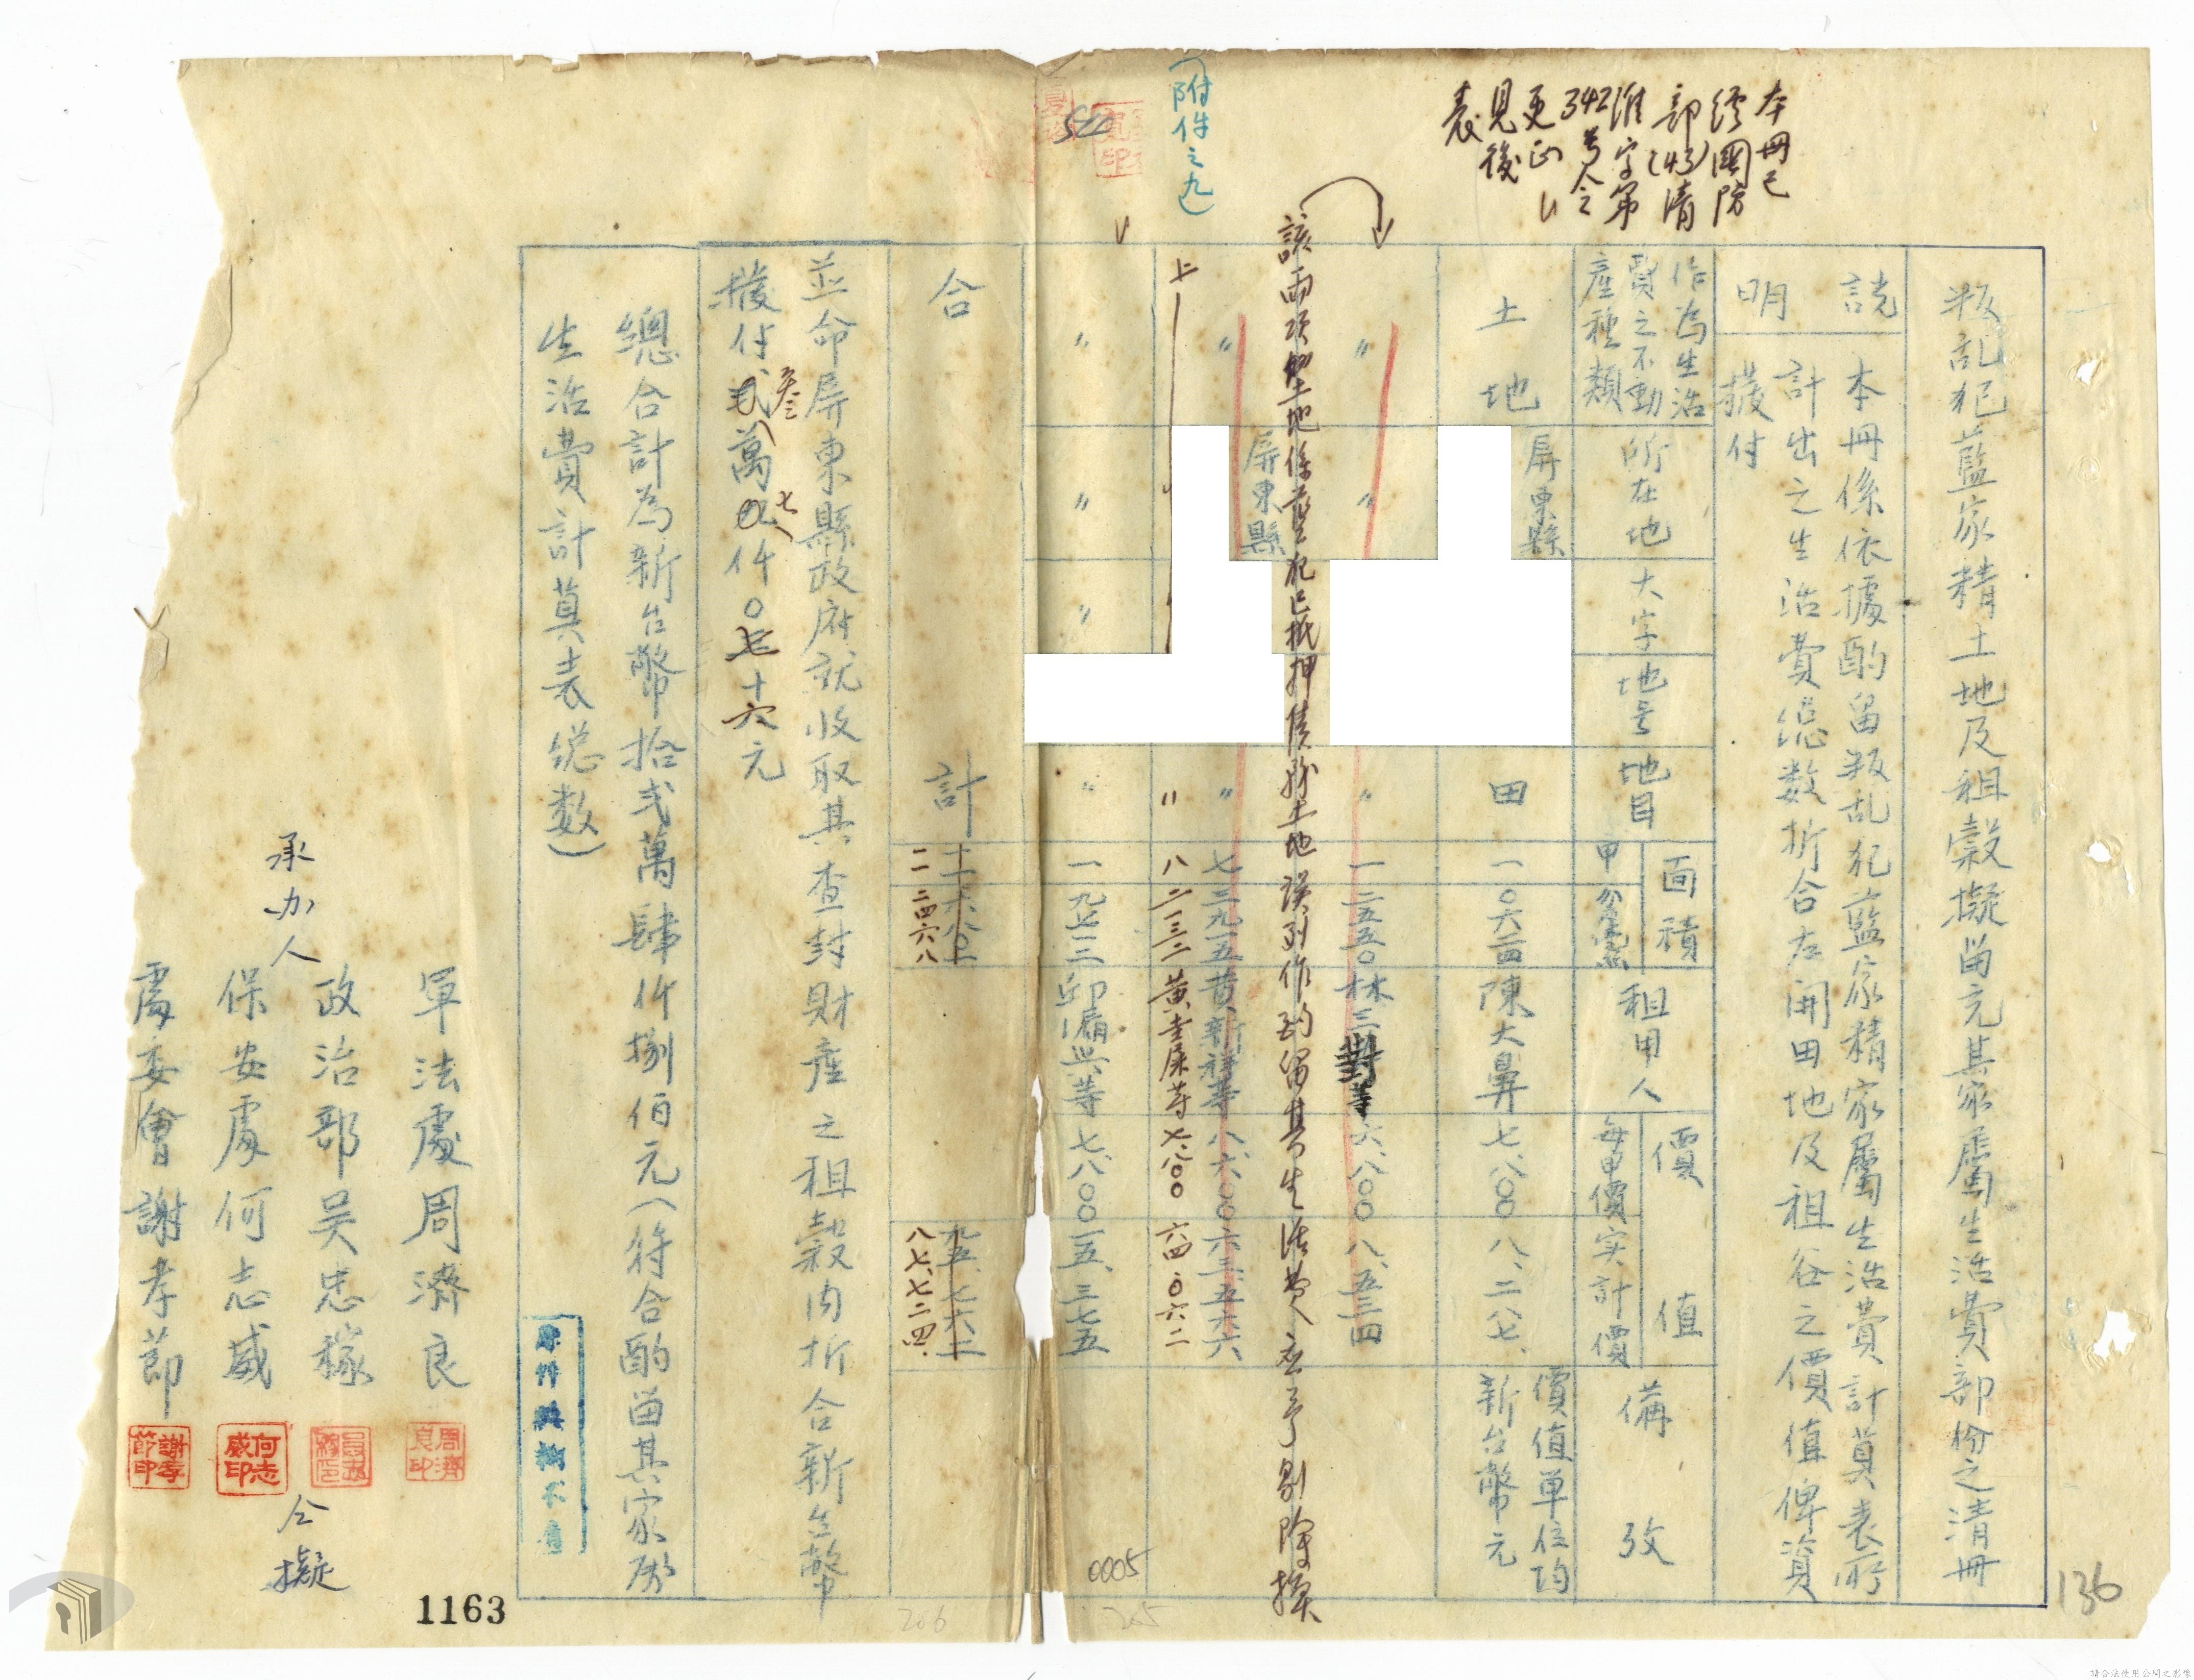 本冊已
經國防
部(43)清
淮字第
342号令
更正
見後
表
(附件之九)
叛乱犯藍家精土地及租穀擬留充其家屬生活費部份之清冊
說明
本冊係依據酌留叛乱犯藍家精家屬生活費計算表所
計出之生活費總数折合左開田地及租谷之價值俾資
撥付
作為生活
費之不動
產種類
所在地
大字
地号
地目
面積
甲
分厘毫絲
租用人
價值
每甲價
实計價
備攷
土地
屏東縣
田
一
〇六二四
陳大鼻
七、八〇〇
八、二八七、
價值単位均
新台幣元
〃
〃
〃
一
二五五〇
林三對等
六、八〇〇
八、五三四
該兩項土地係藍犯已抵押債務土地誤列作酌留其生活費應予剔除換
〃
屏東縣
〃
七
三九一五
黃新祥等
八、六〇〇
六三、五六六
〃
八
二一三二
七、八〇〇
六四、〇六二
〃
〃
〃
〃
一
九七一三
邱漏興等
七、八〇〇
一五、三七五
合計
九五、七六二
一一
二四六八
八七、七二四
並命屏東縣政府就收取其查封財產之租穀內折合新台幣
撥付叁萬七仟〇七十六元
總合計為新台幣拾弍萬肆仟捌佰元(符合酌留其家屬
生活費計算表総数)
原件與衡不實
承办人
軍法處周濟良
政治部吴忠稼
保安處何志威
處委會謝孝節
周濟良印
何志威印
謝孝節印
仝擬
1163
0005
206
205
136
請合法使用公開之影像